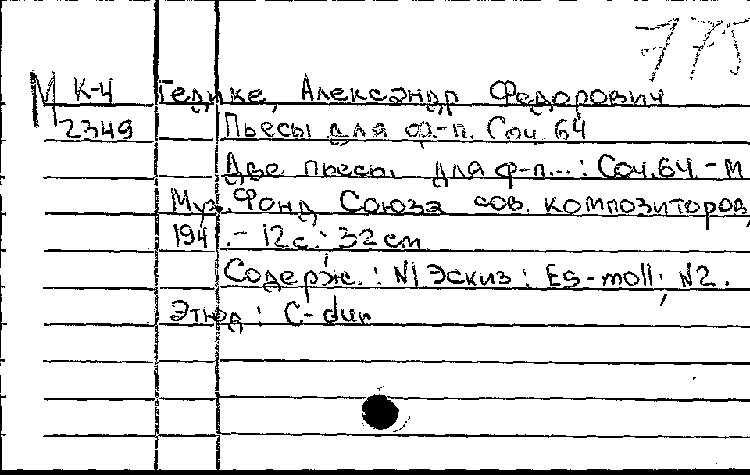 775
М К-4 Гедике, Александр Федорович
2349 Пьесы для ф-п. Соч. 64
Две пьесы для ф-п...: Соч. 64. - М
Муз. Фонд Союза сов. композиторов,
194 . - 12 с.; 32 см
Содерж.: N1 Эскиз: Es-moll; N2.
Этюд: C-dur